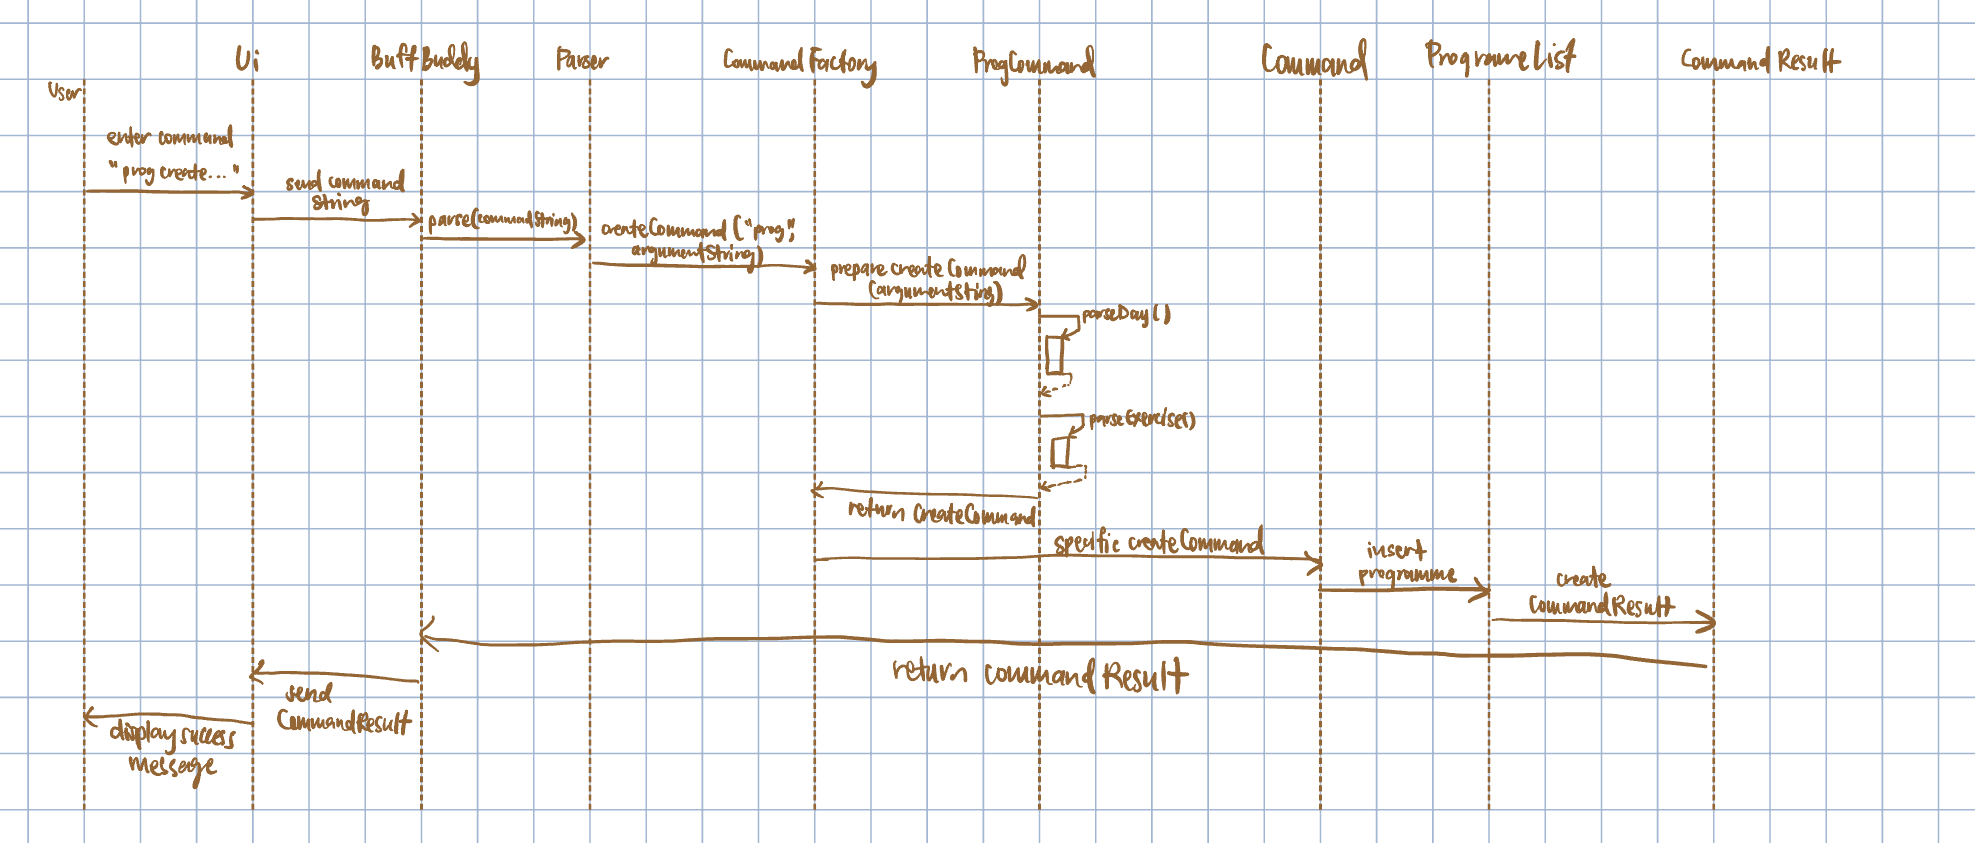 Ui
BuffBuddy
Parser
CommandFactory
ProgCommand
Command
ProgrameList
CommandResult
User
enter command
"prog create..."
send command
string
parse(commandString)
createCommand ("prog",
argumentString)
prepare create Command
(argumentString)
parseDay()
parseExercise()
return CreateCommand
specific createCommand
insert
programme
create
CommandResult
return commandResult
send
CommandResult
display success
message